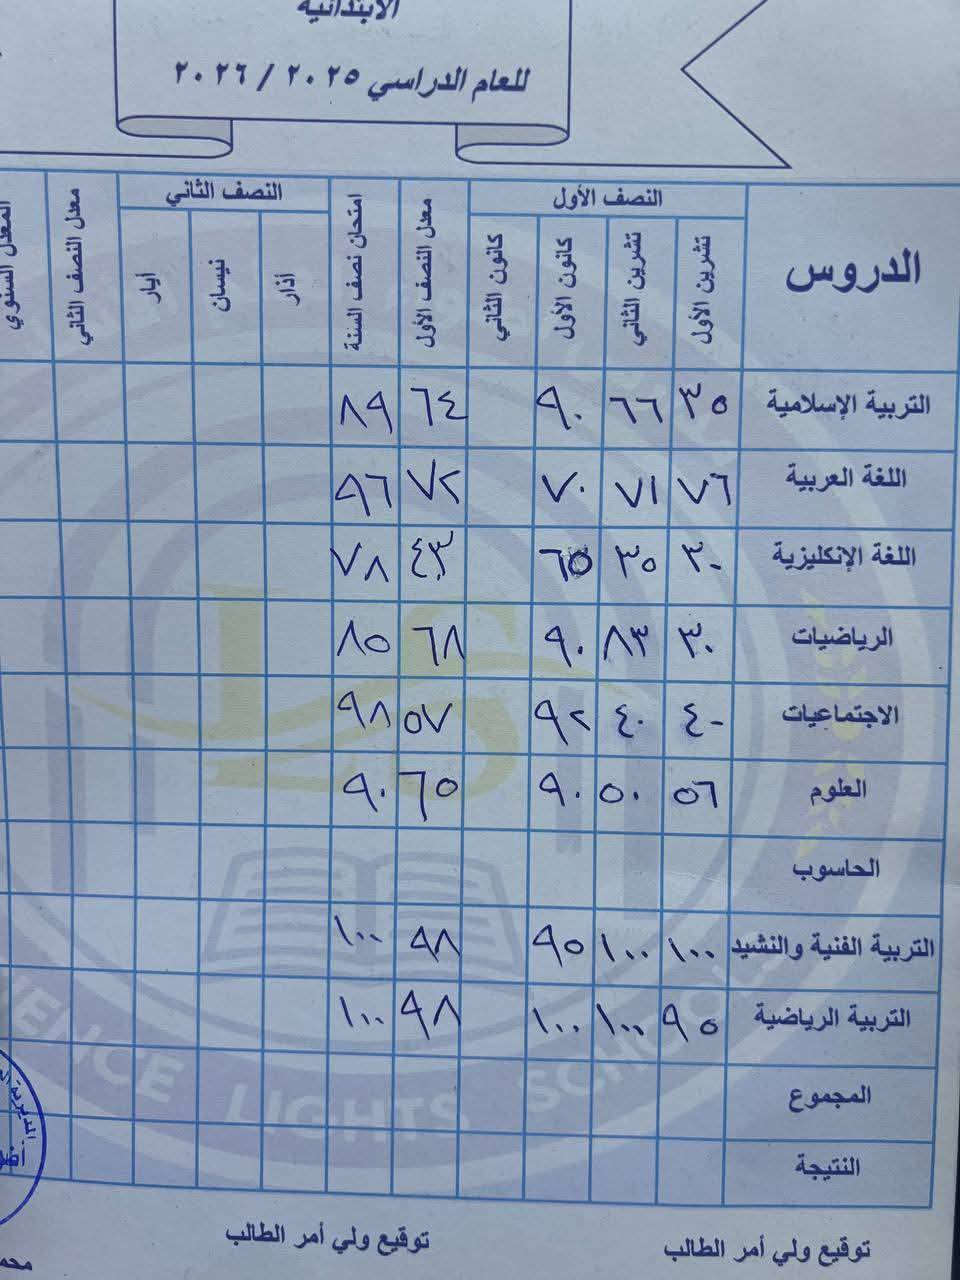 الابتدائية
للعام الدراسي ٢٠٢٥ / ٢٠٢٦
الدروس النصف الأول معدل النصف الأول امتحان نصف السنة النصف الثاني معدل النصف الثاني المعدل السنوي
تشرين الأول تشرين الثاني كانون الأول كانون الثاني آذار نيسان أيار
التربية الإسلامية ٣٥ ٦٦ ٩٠ ٦٤ ٨٩
اللغة العربية ٧٦ ٧١ ٧٠ ٧٢ ٩٦
اللغة الإنكليزية ٣٠ ٣٥ ٦٥ ٤٣ ٧٨
الرياضيات ٣٠ ٨٣ ٩٠ ٦٨ ٨٥
الاجتماعيات ٤٠ ٤٠ ٩٢ ٥٧ ٩٨
العلوم ٥٦ ٥٠ ٩٠ ٦٥ ٩٠
الحاسوب
التربية الفنية والنشيد ١٠٠ ١٠٠ ٩٥ ٩٨ ١٠٠
التربية الرياضية ٩٥ ١٠٠ ١٠٠ ٩٨ ١٠٠
المجموع
النتيجة
توقيع ولي أمر الطالب توقيع ولي أمر الطالب
LS
LIGHTS SCHOOLS